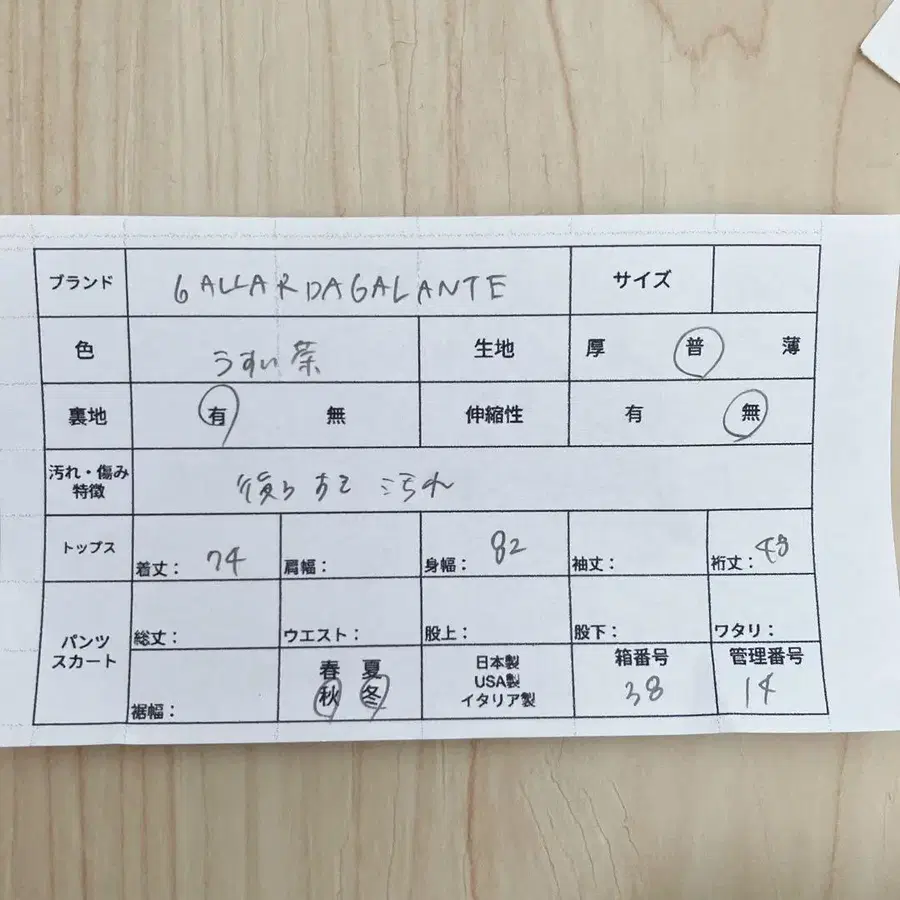 ブランド GALLARDAGALANTE サイズ
色 うすい茶 生地 厚 普 薄
裏地 有 無 伸縮性 有 無
汚れ・傷み
特徴 後ろすそ 汚れ
トップス 着丈: 74 肩幅: 身幅: 82 袖丈: 裄丈:
パンツ
スカート 総丈: ウエスト: 股上: 股下: ワタリ:
裾幅: 春 夏
秋 冬
日本製
USA製
イタリア製
箱番号
38
管理番号
14